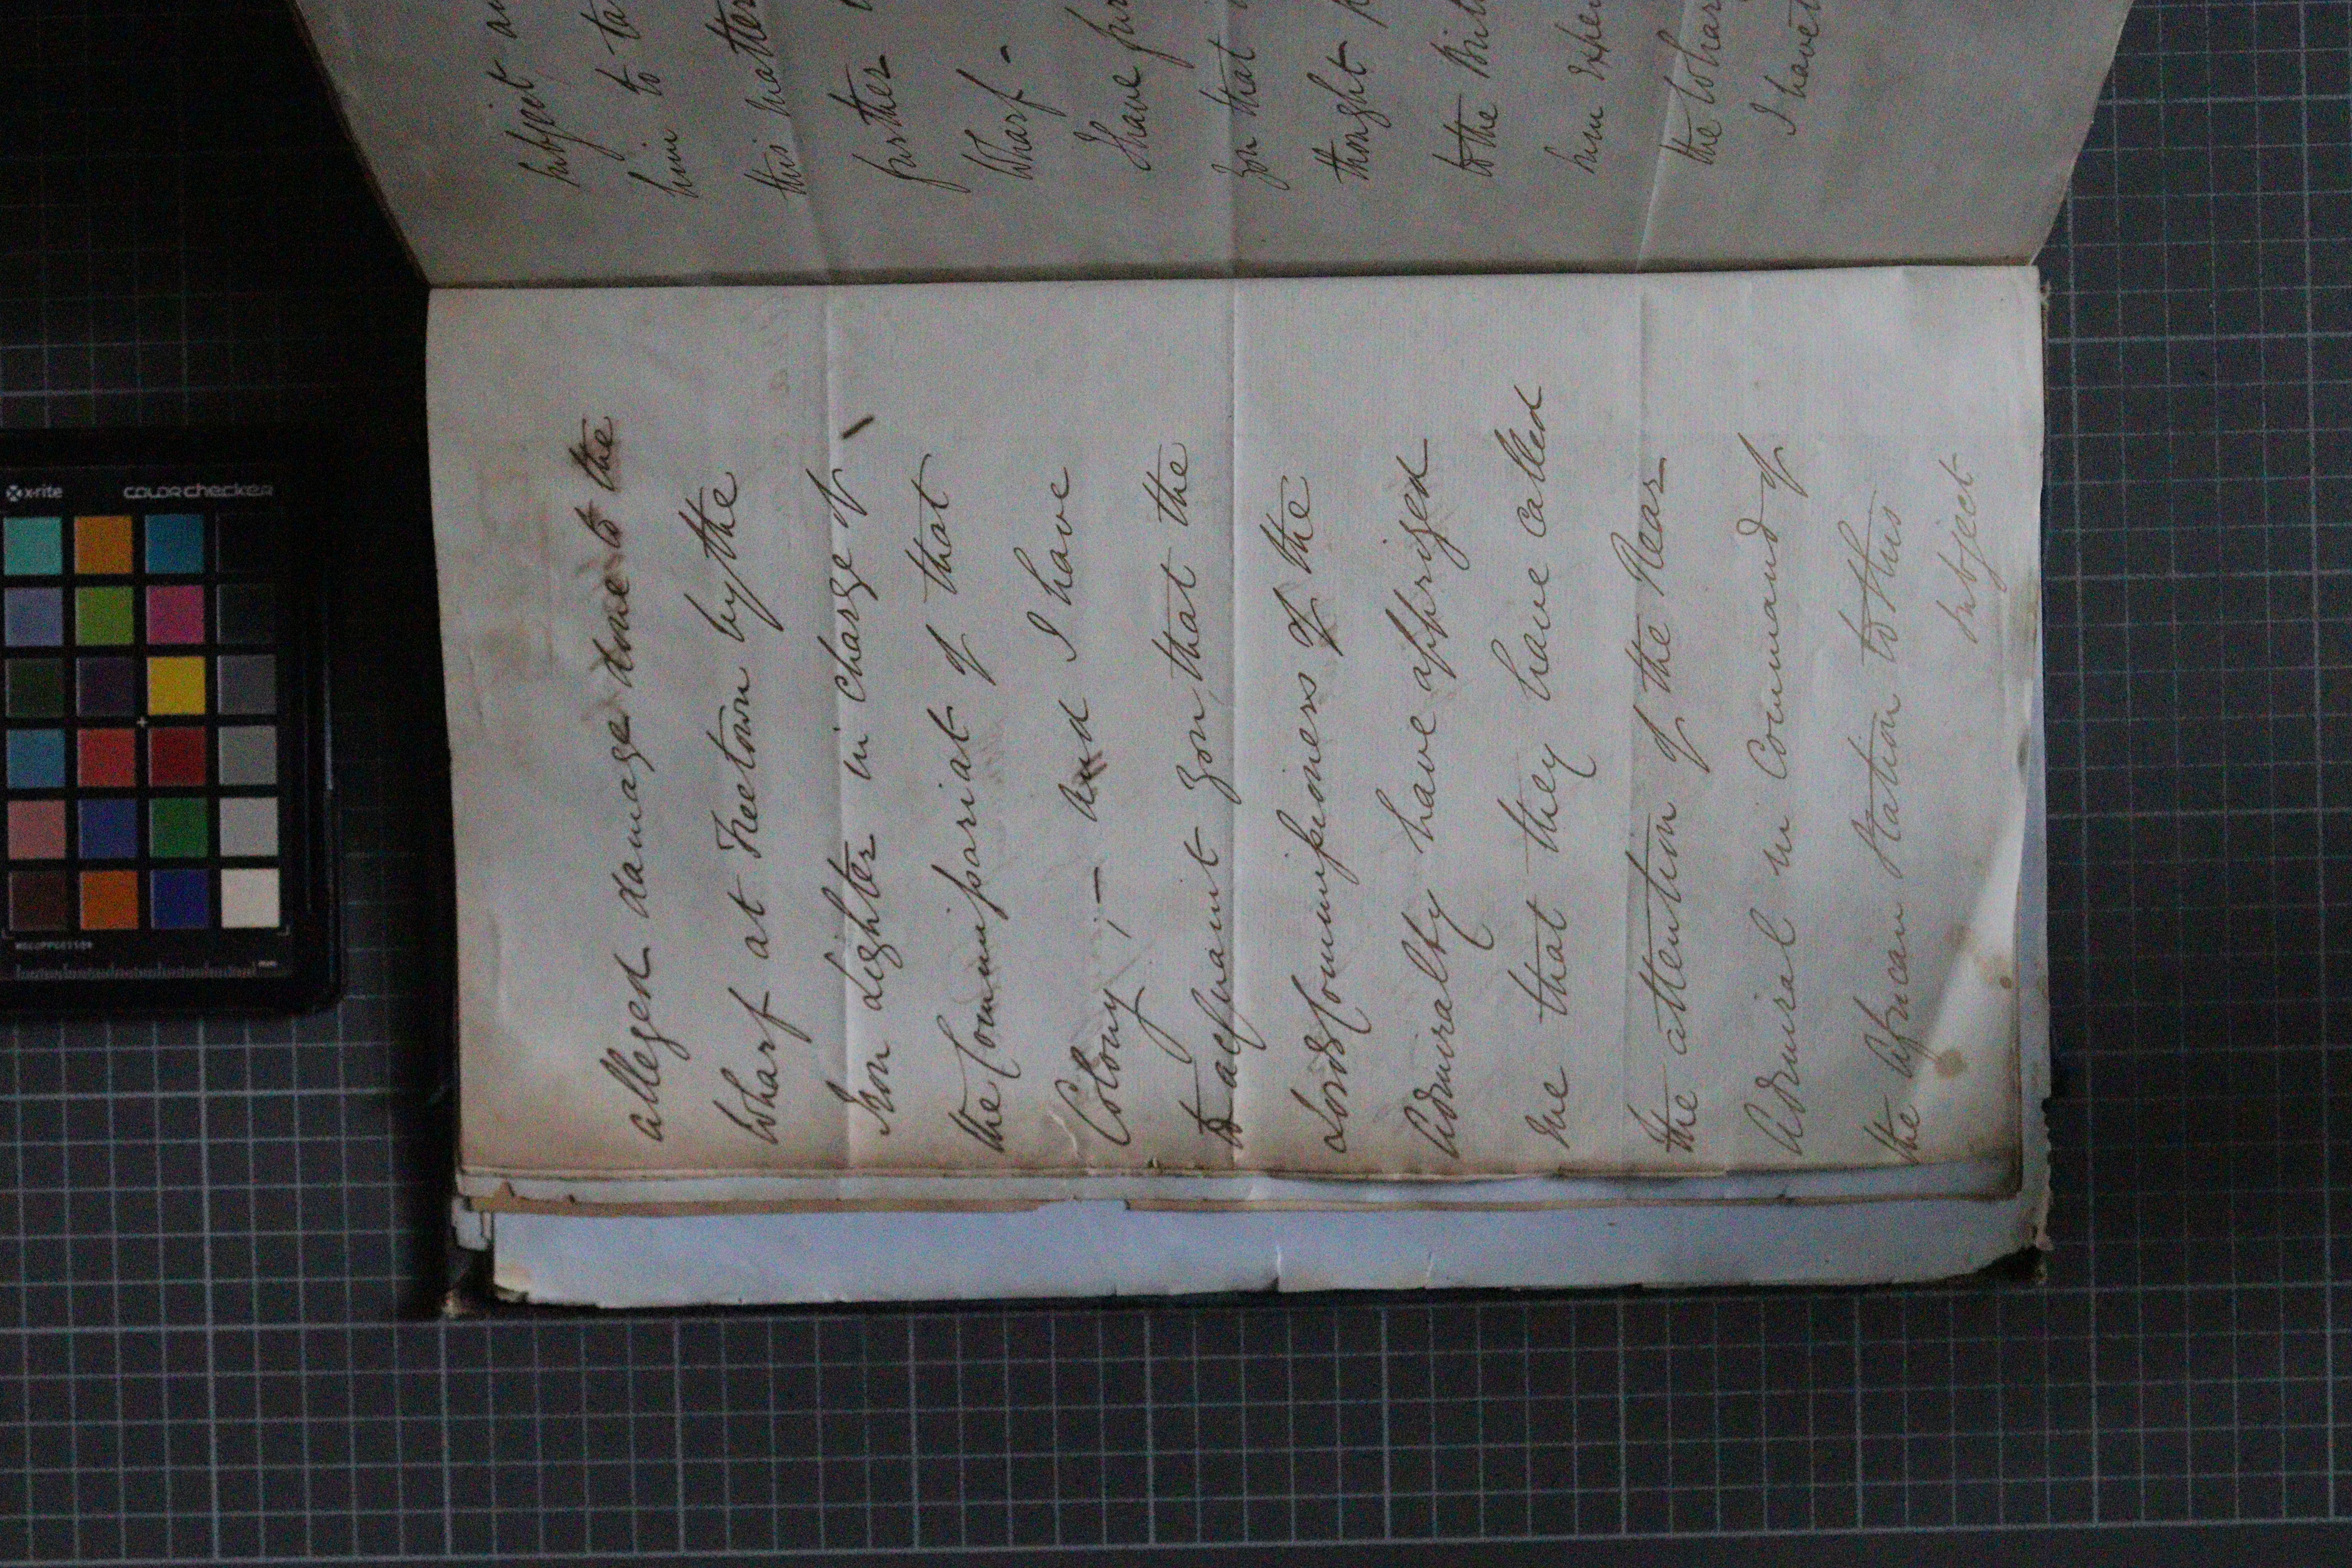 alleged damage done to the
Wharf at Freetown by the
Iron Lighter in charge of
the Commissariat of that
Colony;— and I have
to acquaint you, that the
Lords Commissioners of the
Admiralty have apprized
me that they have called
the attention of the Rear
Admiral in Command of
the African Station to this
subject
subject
him to
this matter
further
Wharf -
I have
you that
thought
to the
him
the Wharf
I have
x-rite
colorchecker